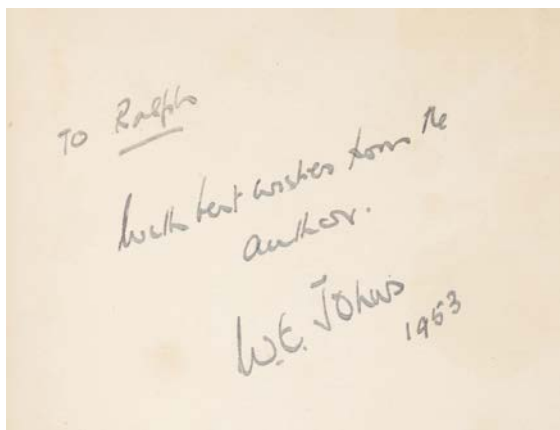 To Ralph
With best wishes from the
author.
W.E. Johns
1953